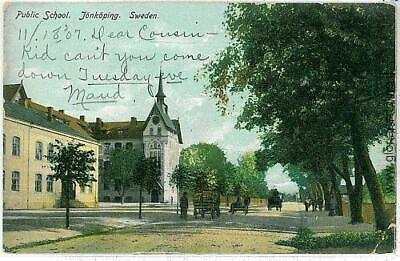 Public School. Jönköping. Sweden.
11/18'07. Dear Cousin-
Kid can't you come
down Tuesday eve
Maud.